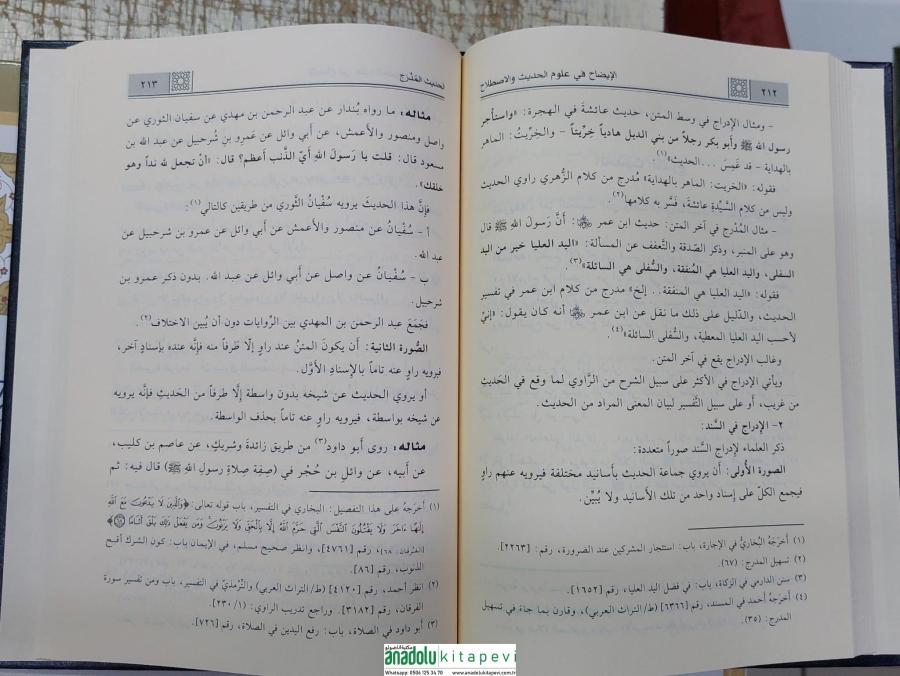 الإيضاح في علوم الحديث والاصطلاح
٢١٢
- ومثال الإدراج في وسط المتن، حديث عائشة في الهجرة: «واستأجر
رسول الله ﷺ وأبو بكر رجلاً من بني الديل هادياً خِرِّيتاً - والخِرِّيتُ: الماهر
بالهداية - قد غَمِسَ ... الحديث»(١).
فقوله: «الخريت: الماهر بالهداية» مُدرج من كلام الزُّهري راوي الحديث
وليس من كلام السيِّدةِ عائشة، فسَّر به كلامها(٢).
- مثال المُدْرج في آخر المتن: حديث ابن عمر ﷺ: أنَّ رَسولَ الله ﷺ قال
وهو على المنبر، وذكر الصّدقة والتَّعفف عن المسألة: «اليد العليا خير من اليد
السفلى، واليد العليا هي المُنفقة، والسُّفلى هي السائلة»(٣)
فقوله: «اليد العليا هي المنفقة.. إلخ» مدرج من كلام ابن عمر في تفسير
الحديث، والدّليل على ذلك ما نقل عن ابن عمر أنه كان يقول: «إنيّ
لأحسب اليد العليا المعطية، والسُّفلى السائلة»(٤).
وغالب الإدراج يقع في آخر المتن.
ويأتي الإدراج في الأكثر على سبيل الشرح من الرَّاوي لما وقع في الحَديث
من غريب، أو على سبيل التَّفسير لبيان المعنى المراد من الحديث.
٢- الإدراج في السَّند:
ذكر العلماء لإدراج السَّند صوراً متعددة:
الصورة الأُولى: أن يروي جماعة الحديث بأسانيد مختلفة فيرويه عنهم راوٍ
فيجمع الكلّ على إسناد واحد من تلك الأسانيد ولا يُبيِّن.
(١) أخرَجَهُ البُخَاريُّ في الإجارة، باب: استئجار المشركين عند الضرورة، رقم: [٢٢٦٣].
(٢) تسهيل المدرج: (٦٧).
(٣) سنن الدارمي في الزكاة، باب: في فضل اليد العليا، رقم [١٦٥٢].
(٤) أخرَجَهُ أحمد في المسند، رقم [٦٣٦٦] (ط/التراث العربي)، وقارن بما جاء في تسهيل
المدرج: (٣٥).
الحديث المُدْرج
٢١٣
مثاله: ما رواه بُندار عن عبد الرحمن بن مهدي عن سفيان الثوري عن
واصل ومنصور والأعمش، عن أبي وائل عن عمرو بن شرحبيل عن عبد الله بن
مسعود قال: قلت يا رَسولَ اللهِ أيّ الذَّنب أعظم؟ قال: «أنْ تجعل لله نداً وهو
خلقك».
فإنَّ هذا الحديثَ يرويه سُفْيانُ الثَّوري من طريقين كالتالي(١):
أ - سُفْيانُ عن منصور والأعمش عن أبي وائل عن عمرو بن شرحبيل عن
عبد الله.
ب - سُفْيانُ عن واصل عن أبي وائل عن عبد الله. بدون ذكر عمرو بن
شرحبيل.
فجَمَعَ عبد الرحمن بن المهدي بين الرِّوايات دون أن يُبين الاختلاف(٢).
الصُّورة الثانية: أن يكونَ المتنُ عند راوٍ إلّا طَرفاً منه فإنَّه عنده بإسنادٍ آخر،
فيرويه راوٍ عنه تاماً بالإسنادِ الأوَّل.
أو يروي الحديث عن شيخه بدون واسطة إلّا طرفاً من الحَديث فإنَّه يرويه
عن شيخه بواسطة، فيرويه راوٍ عنه تاماً بحذف الواسطة.
مثاله: روى أبو داود(٣) من طريق زائدة وشريك، عن عاصم بن كليب،
عن أبيه، عن وائل بن حُجْر في (صِفة صلاةِ رسولِ اللهِ ﷺ) قال فيه: ثم
(١) أخرَجَهُ على هذا التفصيل: البخاري في التفسير، باب قوله تعالى: ﴿وَالَّذِينَ لَا يَدْعُونَ مَعَ اللَّهِ
إِلَهًا ءَاخَرَ وَلَا يَقْتُلُونَ النَّفْسَ الَّتِي حَرَّمَ اللَّهُ إِلَّا بِالْحَقِّ وَلَا يَزْنُونَ وَمَن يَفْعَلْ ذَلِكَ يَلْقَ أَثَامًا ٦٨﴾
[الفرقان: ٦٨]، رقم [٤٧٦١]، وانظر صحيح مسلم، في الإيمان باب: كون الشرك أقبح
الذنوب، رقم [٨٦].
(٢) انظر أحمد، رقم [٤١٢٠] (ط/التراث العربي) والتِّرْمذيّ في التفسير، باب ومن تفسير سورة
الفرقان، رقم [٣١٨٢]. وراجع تدريب الراوي: (٢٣٠/١).
(٣) أبو داود في الصلاة، باب: رفع اليدين في الصلاة، رقم [٧٢٦].
مكتبة الأناضول
anadolu kitapevi
Whatsapp: 0506 125 34 70 www.anadolukitapevi.com.tr